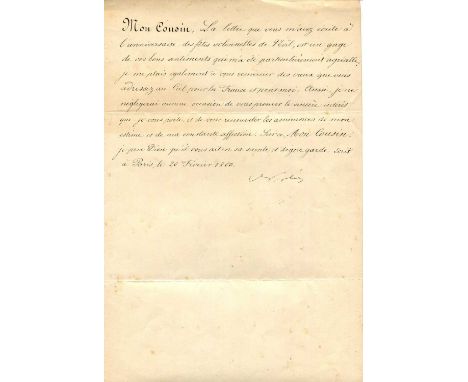 Mon Cousin, La lettre que vous m'avez écrite à
l'anniversaire des fêtes solennelles de Noël, est un gage
de vos bons sentiments qui m'a été particulièrement agréable,
je me plais également à vous remercier des vœux que vous
adressez au Ciel pour la France et pour moi. Aussi je ne
négligerai aucune occasion de vous prouver le sincère intérêt
que je vous porte, et de vous renouveler les assurances de mon
estime et de ma constante affection. Sur ce, Mon Cousin,
je prie Dieu qu'il vous ait en sa sainte et digne garde. Écrit
à Paris, le 20 Février